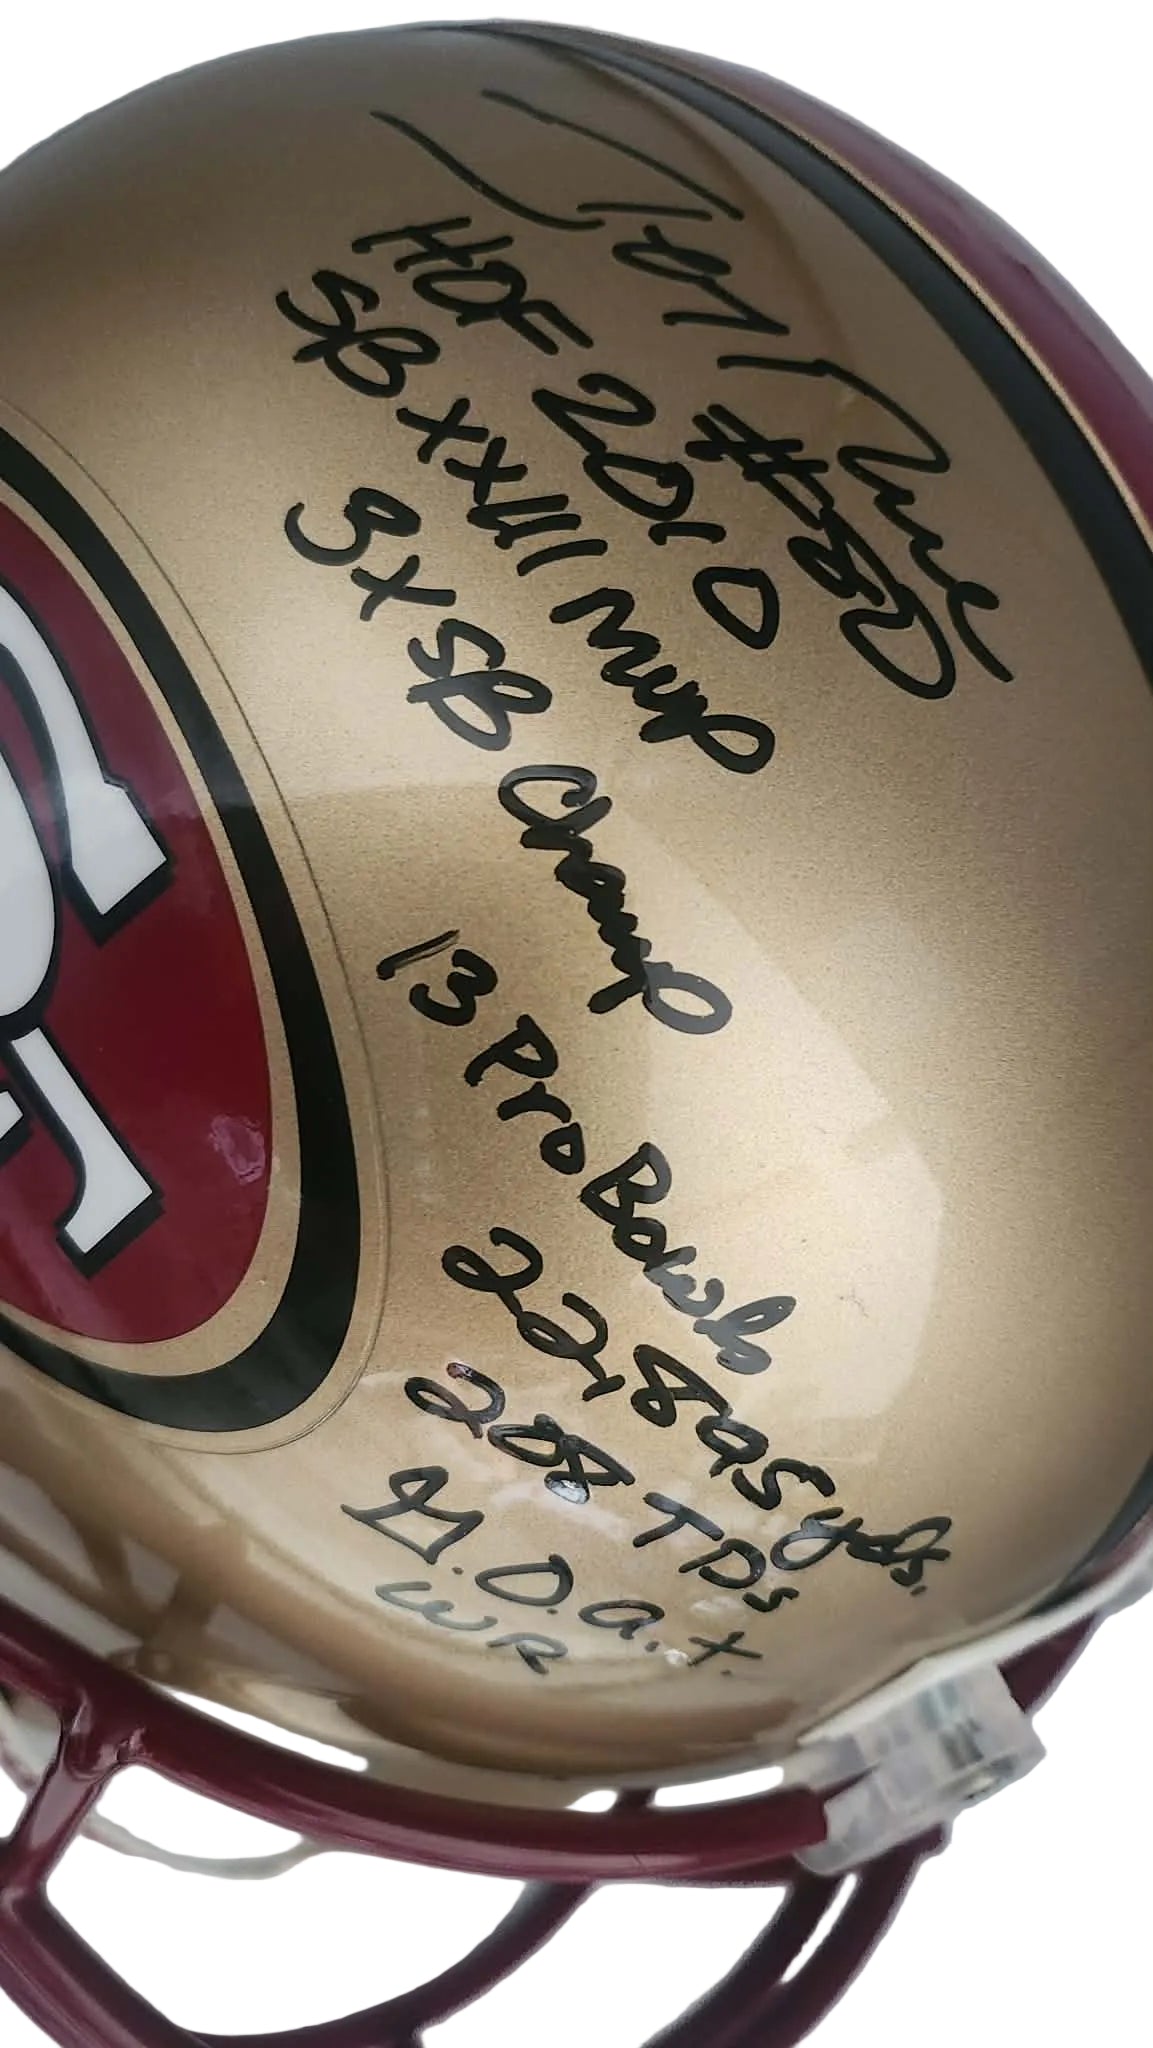 Jerry Rice
#80
HOF 2010
SB XXIII MVP
3X SB Champ
13 Pro Bowls
22,895 yds.
208 TDs
G.O.A.T.
WR